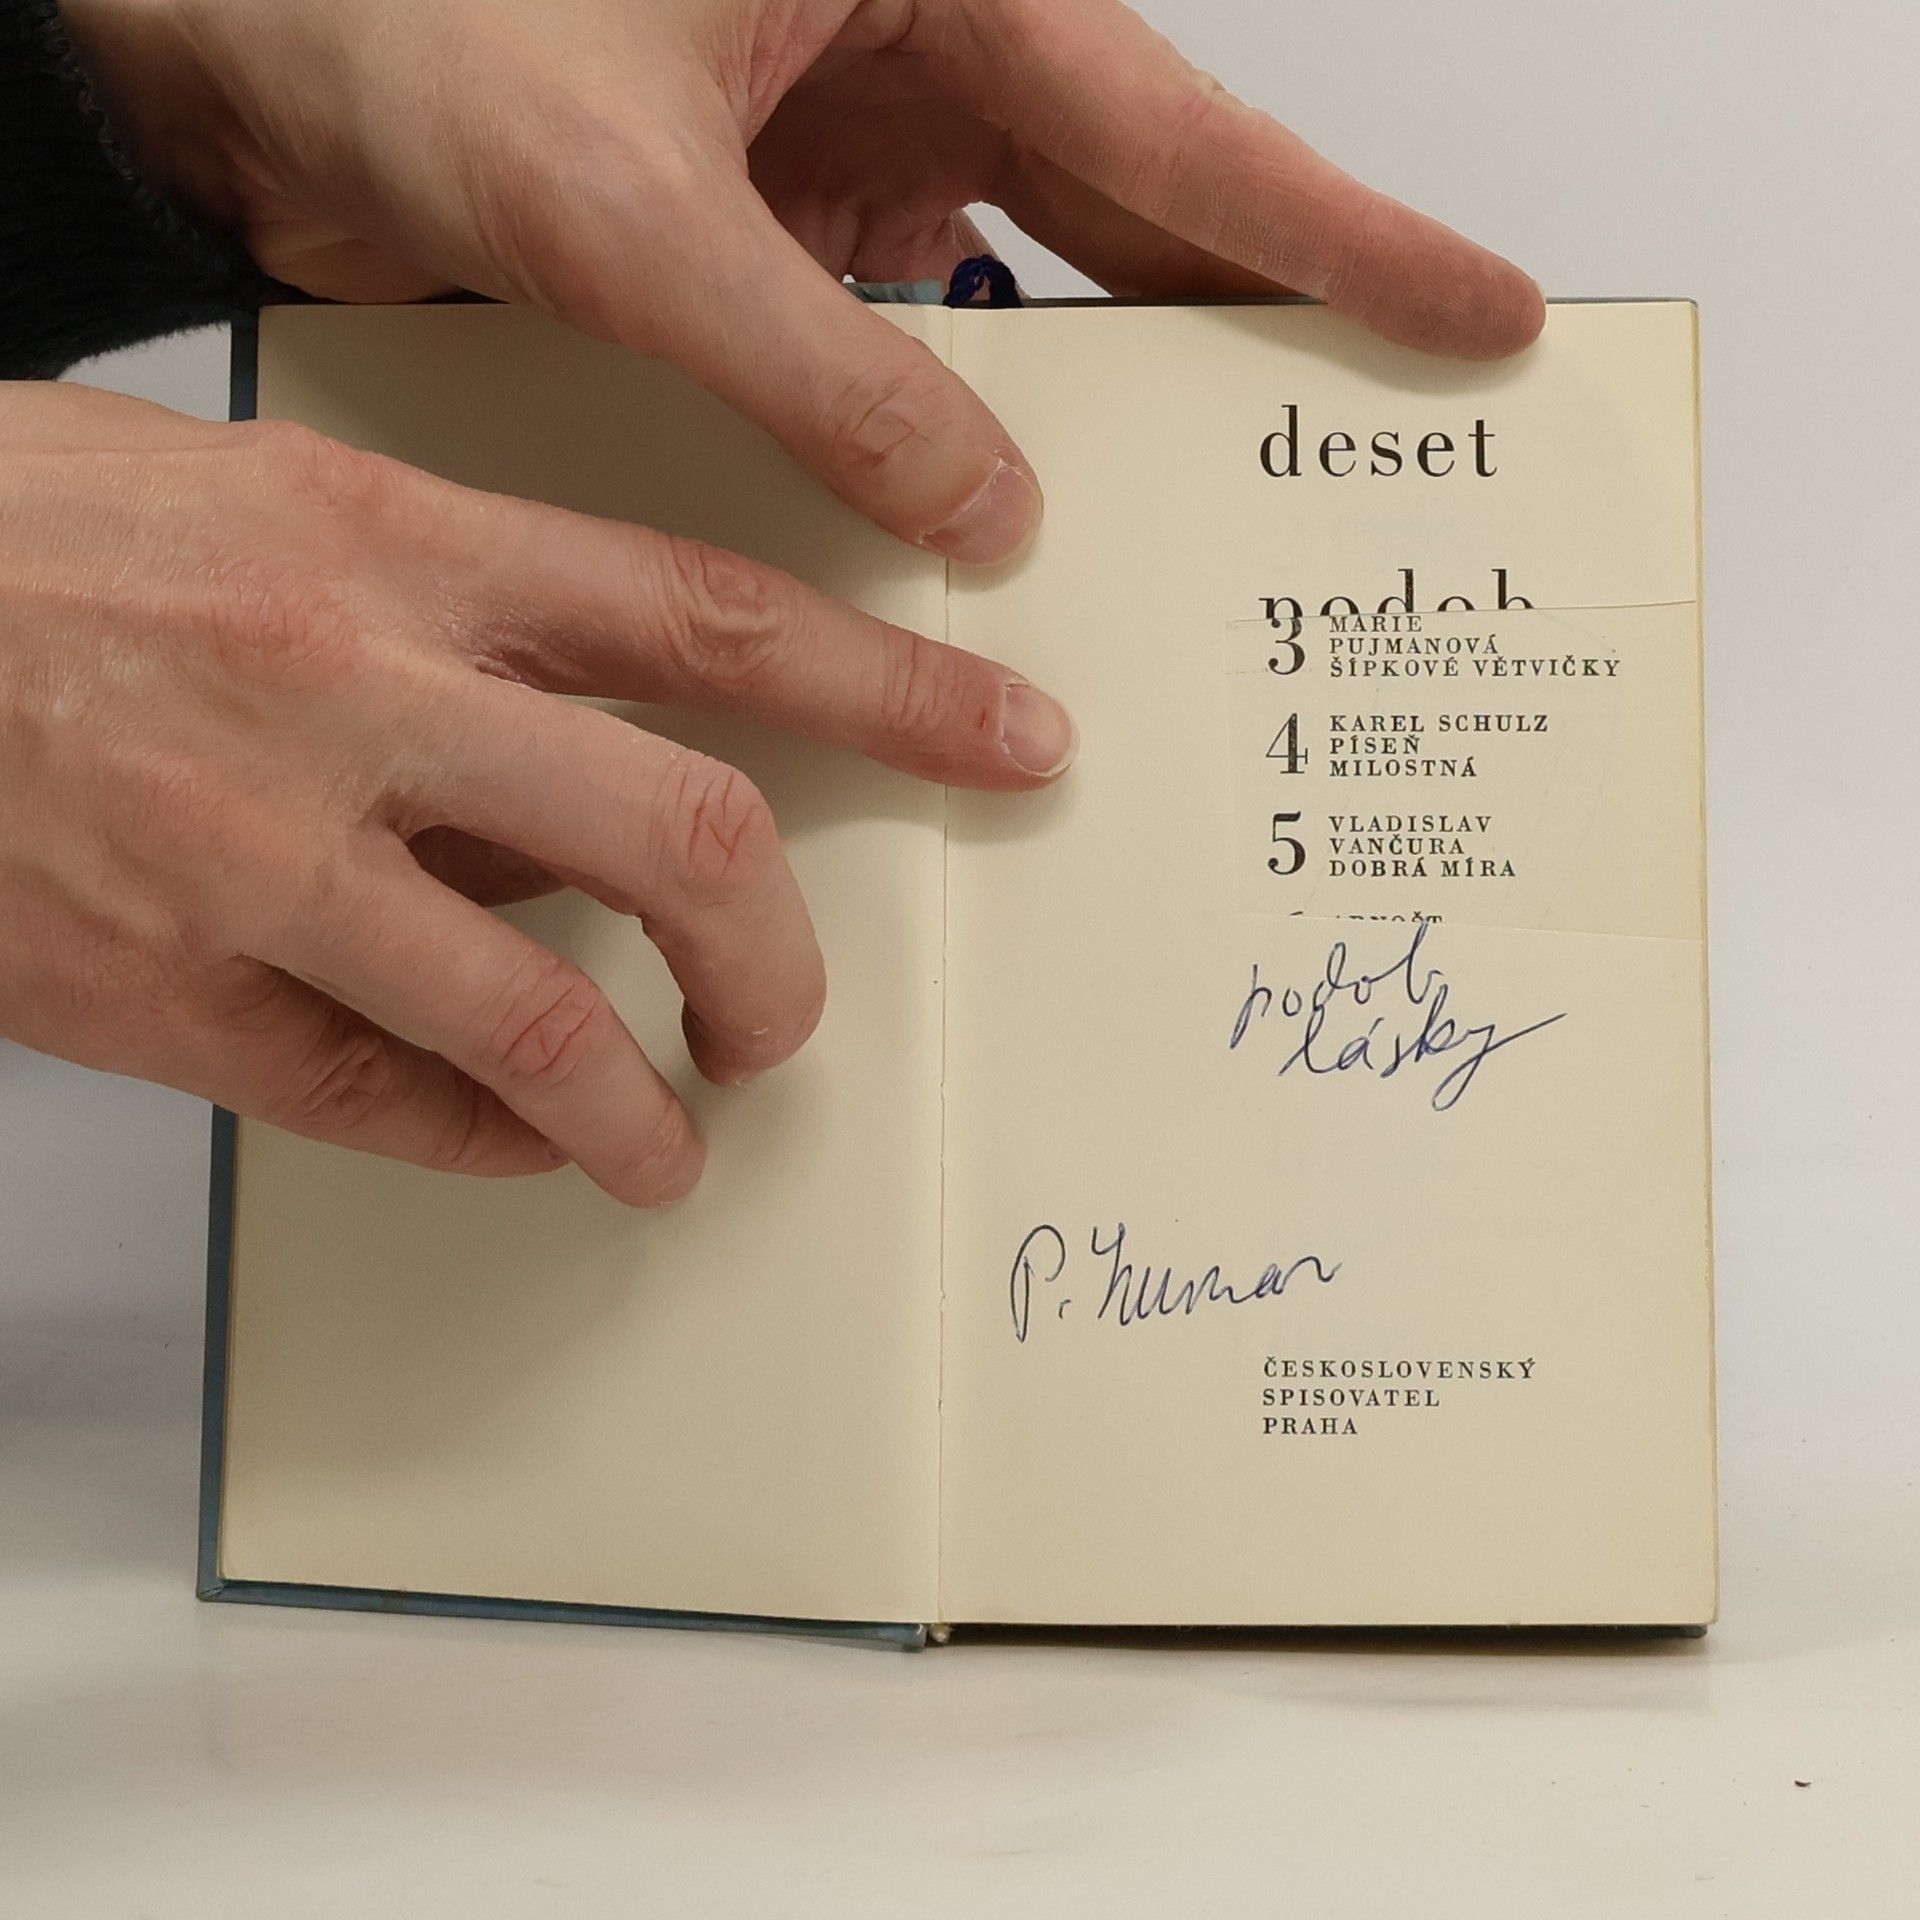 deset
podob
3 MARIE
PUJMANOVÁ
ŠÍPKOVÉ VĚTVIČKY
4 KAREL SCHULZ
PÍSEŇ
MILOSTNÁ
5 VLADISLAV
VANČURA
DOBRÁ MÍRA
podob
lásky
P.
ČESKOSLOVENSKÝ
SPISOVATEL
PRAHA